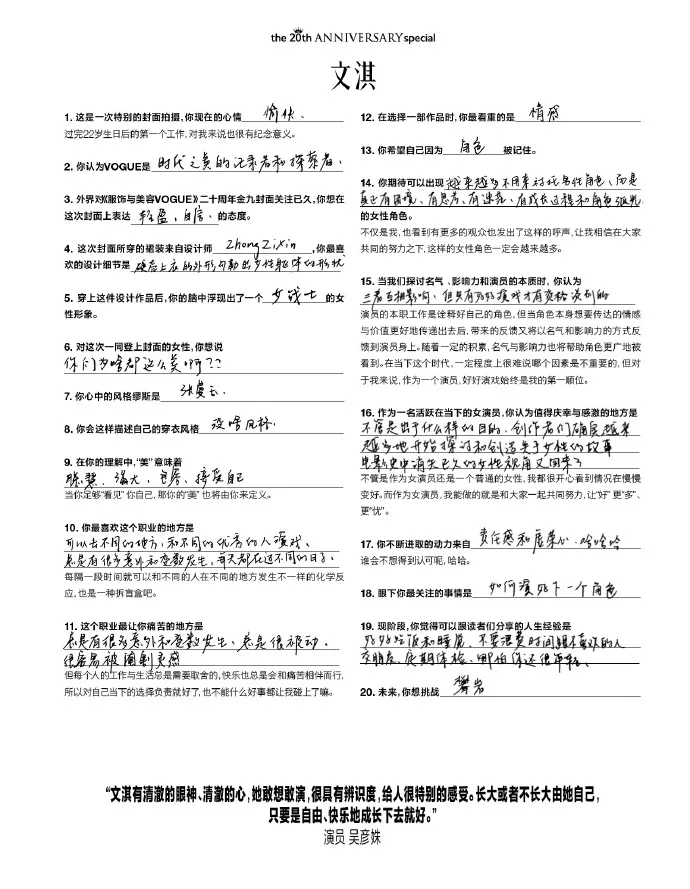 the 20th ANNIVERSARY special
文淇
1. 这是一次特别的封面拍摄,你现在的心情 愉快、
过完22岁生日后的第一个工作,对我来说也很有纪念意义。
2. 你认为VOGUE是 时代之美的记录者和探索者、
3. 外界对《服饰与美容VOGUE》二十周年金九封面关注已久,你想在
这次封面上表达 轻盈、自信、 的态度。
4. 这次封面所穿的裙装来自设计师 Zhong Zixin ,你最喜
欢的设计细节是 硬壳上衣的外形勾勒出女性躯体的形状
5. 穿上这件设计作品后,你的脑中浮现出了一个 女战士 的女
性形象。
6. 对这次一同登上封面的女性,你想说
你们为啥都这么美啊??
7. 你心中的风格缪斯是 张曼玉、
8. 你会这样描述自己的穿衣风格 没啥风格、
9. 在你的理解中,“美”意味着
强大、包容、接受自己
当你足够“看见”你自己,那你的“美”也将由你来定义。
10. 你最喜欢这个职业的地方是
可以去不同的地方,和不同的优秀的人演戏、
总是有很多意外和变数发生,每天都在过不同的日子、
每隔一段时间就可以和不同的人在不同的地方发生不一样的化学反
应,也是一种拆盲盒吧。
11. 这个职业最让你痛苦的地方是
总是有很多意外和变数发生、总是很被动、
很容易被阉割灵感
但每个人的工作与生活总是需要取舍的,快乐也总是会和痛苦相伴而行,
所以对自己当下的选择负责就好了,也不能什么好事都让我碰上了嘛。
12. 在选择一部作品时,你最看重的是 情感
13. 你希望自己因为 角色 被记住。
14. 你期待可以出现 越来越多不用来讨论男性角色、而是
真正有困境、有思考、有迷茫、有成长过程和角色弧光
的女性角色。
不仅是我,也看到有更多的观众也发出了这样的呼声,让我相信在大家
共同的努力之下,这样的女性角色一定会越来越多。
15. 当我们探讨名气、影响力和演员的本质时,你认为
三者互相影响、但只有好好演戏才有资格谈别的
演员的本职工作是诠释好自己的角色,但当角色本身想要传达的情感
与价值更好地传递出去后,带来的反馈又将以名气和影响力的方式反
馈到演员身上。随着一定的积累,名气与影响力也将帮助角色更广地被
看到。在当下这个时代,一定程度上很难说哪个因素是不重要的,但对
于我来说,作为一个演员,好好演戏始终是我的第一顺位。
16. 作为一名活跃在当下的女演员,你认为值得庆幸与感激的地方是
不管是出于什么样的目的、创作者们确实越来
越多地开始探讨和创造关于女性的故事
电影史中消失已久的女性视角又回来了
不管是作为女演员还是一个普通的女性,我都很开心看到情况在慢慢
变好。而作为女演员,我能做的就是和大家一起共同努力,让“好”更“多”、
更“优”。
17. 你不断进取的动力来自 责任感和虚荣心、哈哈哈
谁会不想得到认可呢,哈哈。
18. 眼下你最关注的事情是 如何演好下一个角色
19. 现阶段,你觉得可以跟读者们分享的人生经验是
好好吃饭和睡觉、不要浪费时间跟不喜欢的人
交朋友、定期体检、哪怕你还很年轻、
20. 未来,你想挑战 攀岩
“文淇有清澈的眼神、清澈的心,她敢想敢演,很具有辨识度,给人很特别的感受。长大或者不长大由她自己,
只要是自由、快乐地成长下去就好。”
演员 吴彦姝